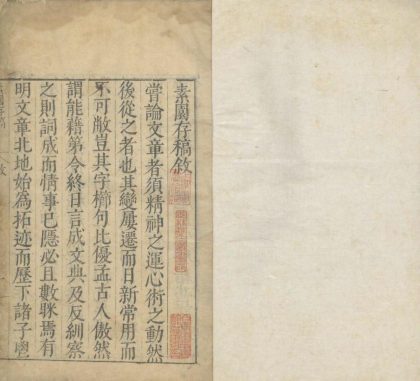 素園存稿敘
嘗論文章者須精神之運心術之動然
後從之者也其變屢遷而日新常用而
不可敝豈其字櫛句比優孟古人傲然
謂能藉第令終日言成文典及反紃察
之則詞成而情事已隱必且數眯焉有
明文章北地始為拓迹而歷下諸子